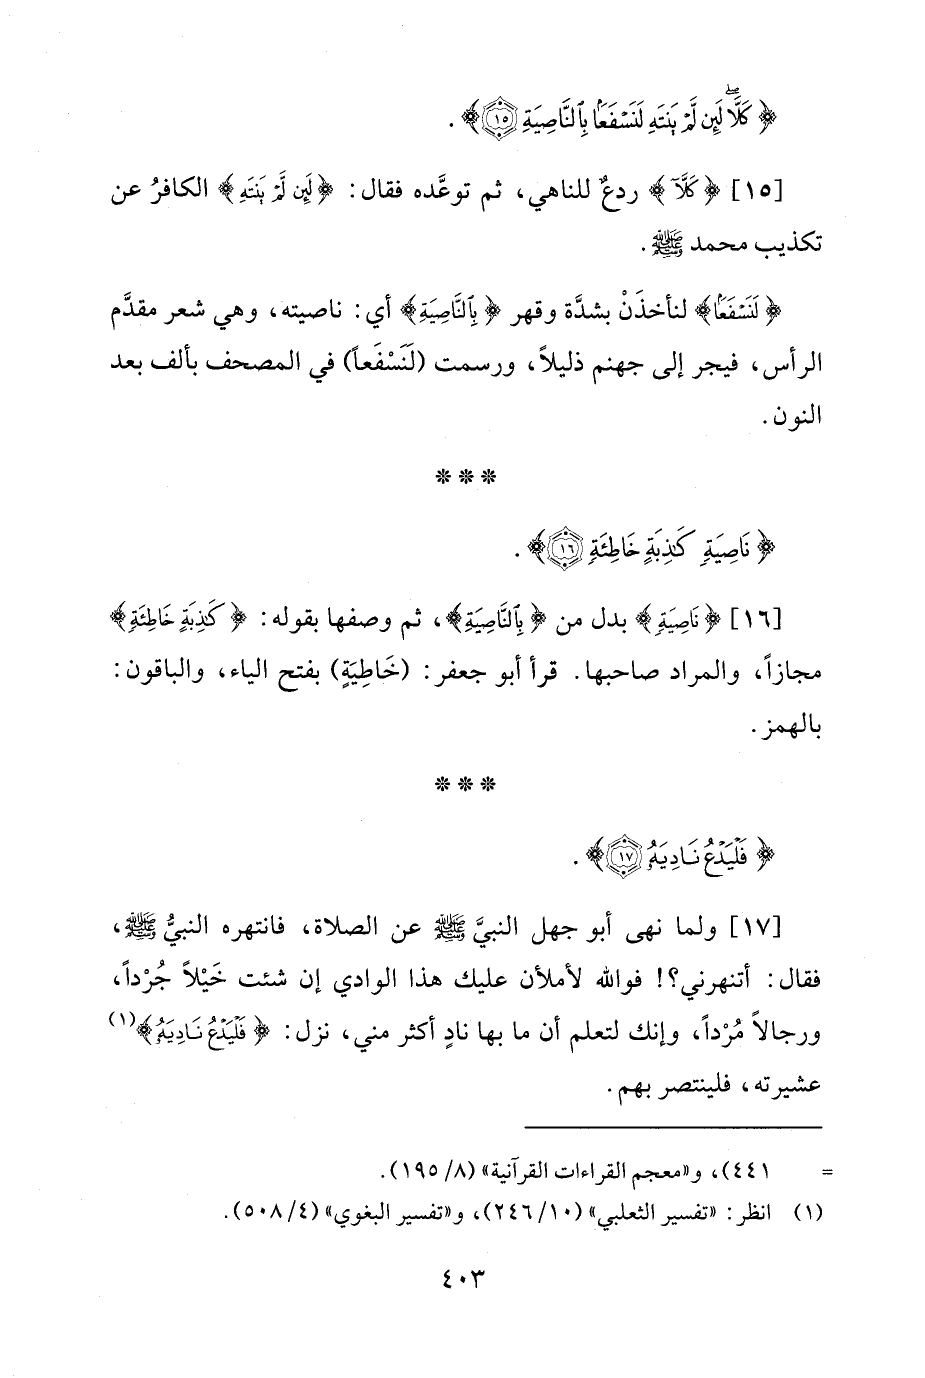 ﴿ كَلَّا لَئِن لَّمْ يَنتَهِ لَنَسْفَعًا بِالنَّاصِيَةِ ١٥﴾ .
[١٥] ﴿ كَلَّا ﴾ ردعٌ للناهي، ثم توعَّده فقال: ﴿ لَئِن لَّمْ يَنتَهِ ﴾ الكافرُ عن
تكذيب محمد ﷺ .
﴿ لَنَسْفَعًا﴾ لنأخذَنْ بشدَّة وقهر ﴿ بِالنَّاصِيَةِ﴾ أي: ناصيته، وهي شعر مقدَّم
الرأس، فيجر إلى جهنم ذليلاً، ورسمت (لَنَسْفَعاً) في المصحف بألف بعد
النون.
* * *
﴿ نَاصِيَةٍ كَٰذِبَةٍ خَاطِئَةٍ ١٦﴾ .
[١٦] ﴿ نَاصِيَةٍ﴾ بدل من ﴿ بِالنَّاصِيَةِ﴾، ثم وصفها بقوله: ﴿ كَٰذِبَةٍ خَاطِئَةٍ﴾
مجازاً، والمراد صاحبها. قرأ أبو جعفر: (خَاطِيَةٍ) بفتح الياء، والباقون:
بالهمز.
* * *
﴿ فَلْيَدْعُ نَادِيَهُ ١٧﴾ .
[١٧] ولما نهى أبو جهل النبيَّ ﷺ عن الصلاة، فانتهره النبيُّ ﷺ،
فقال: أتنهرني؟! فوالله لأملأن عليك هذا الوادي إن شئت خَيْلاً جُرْداً،
ورجالاً مُرْداً، وإنك لتعلم أن ما بها نادٍ أكثر مني، نزل: ﴿ فَلْيَدْعُ نَادِيَهُ﴾(١)
عشيرته، فلينتصر بهم.
= ٤٤١)، و«معجم القراءات القرآنية» (٨/ ١٩٥).
(١) انظر: «تفسير الثعلبي» (١٠/ ٢٤٦)، و«تفسير البغوي» (٤/ ٥٠٨).
٤٠٣